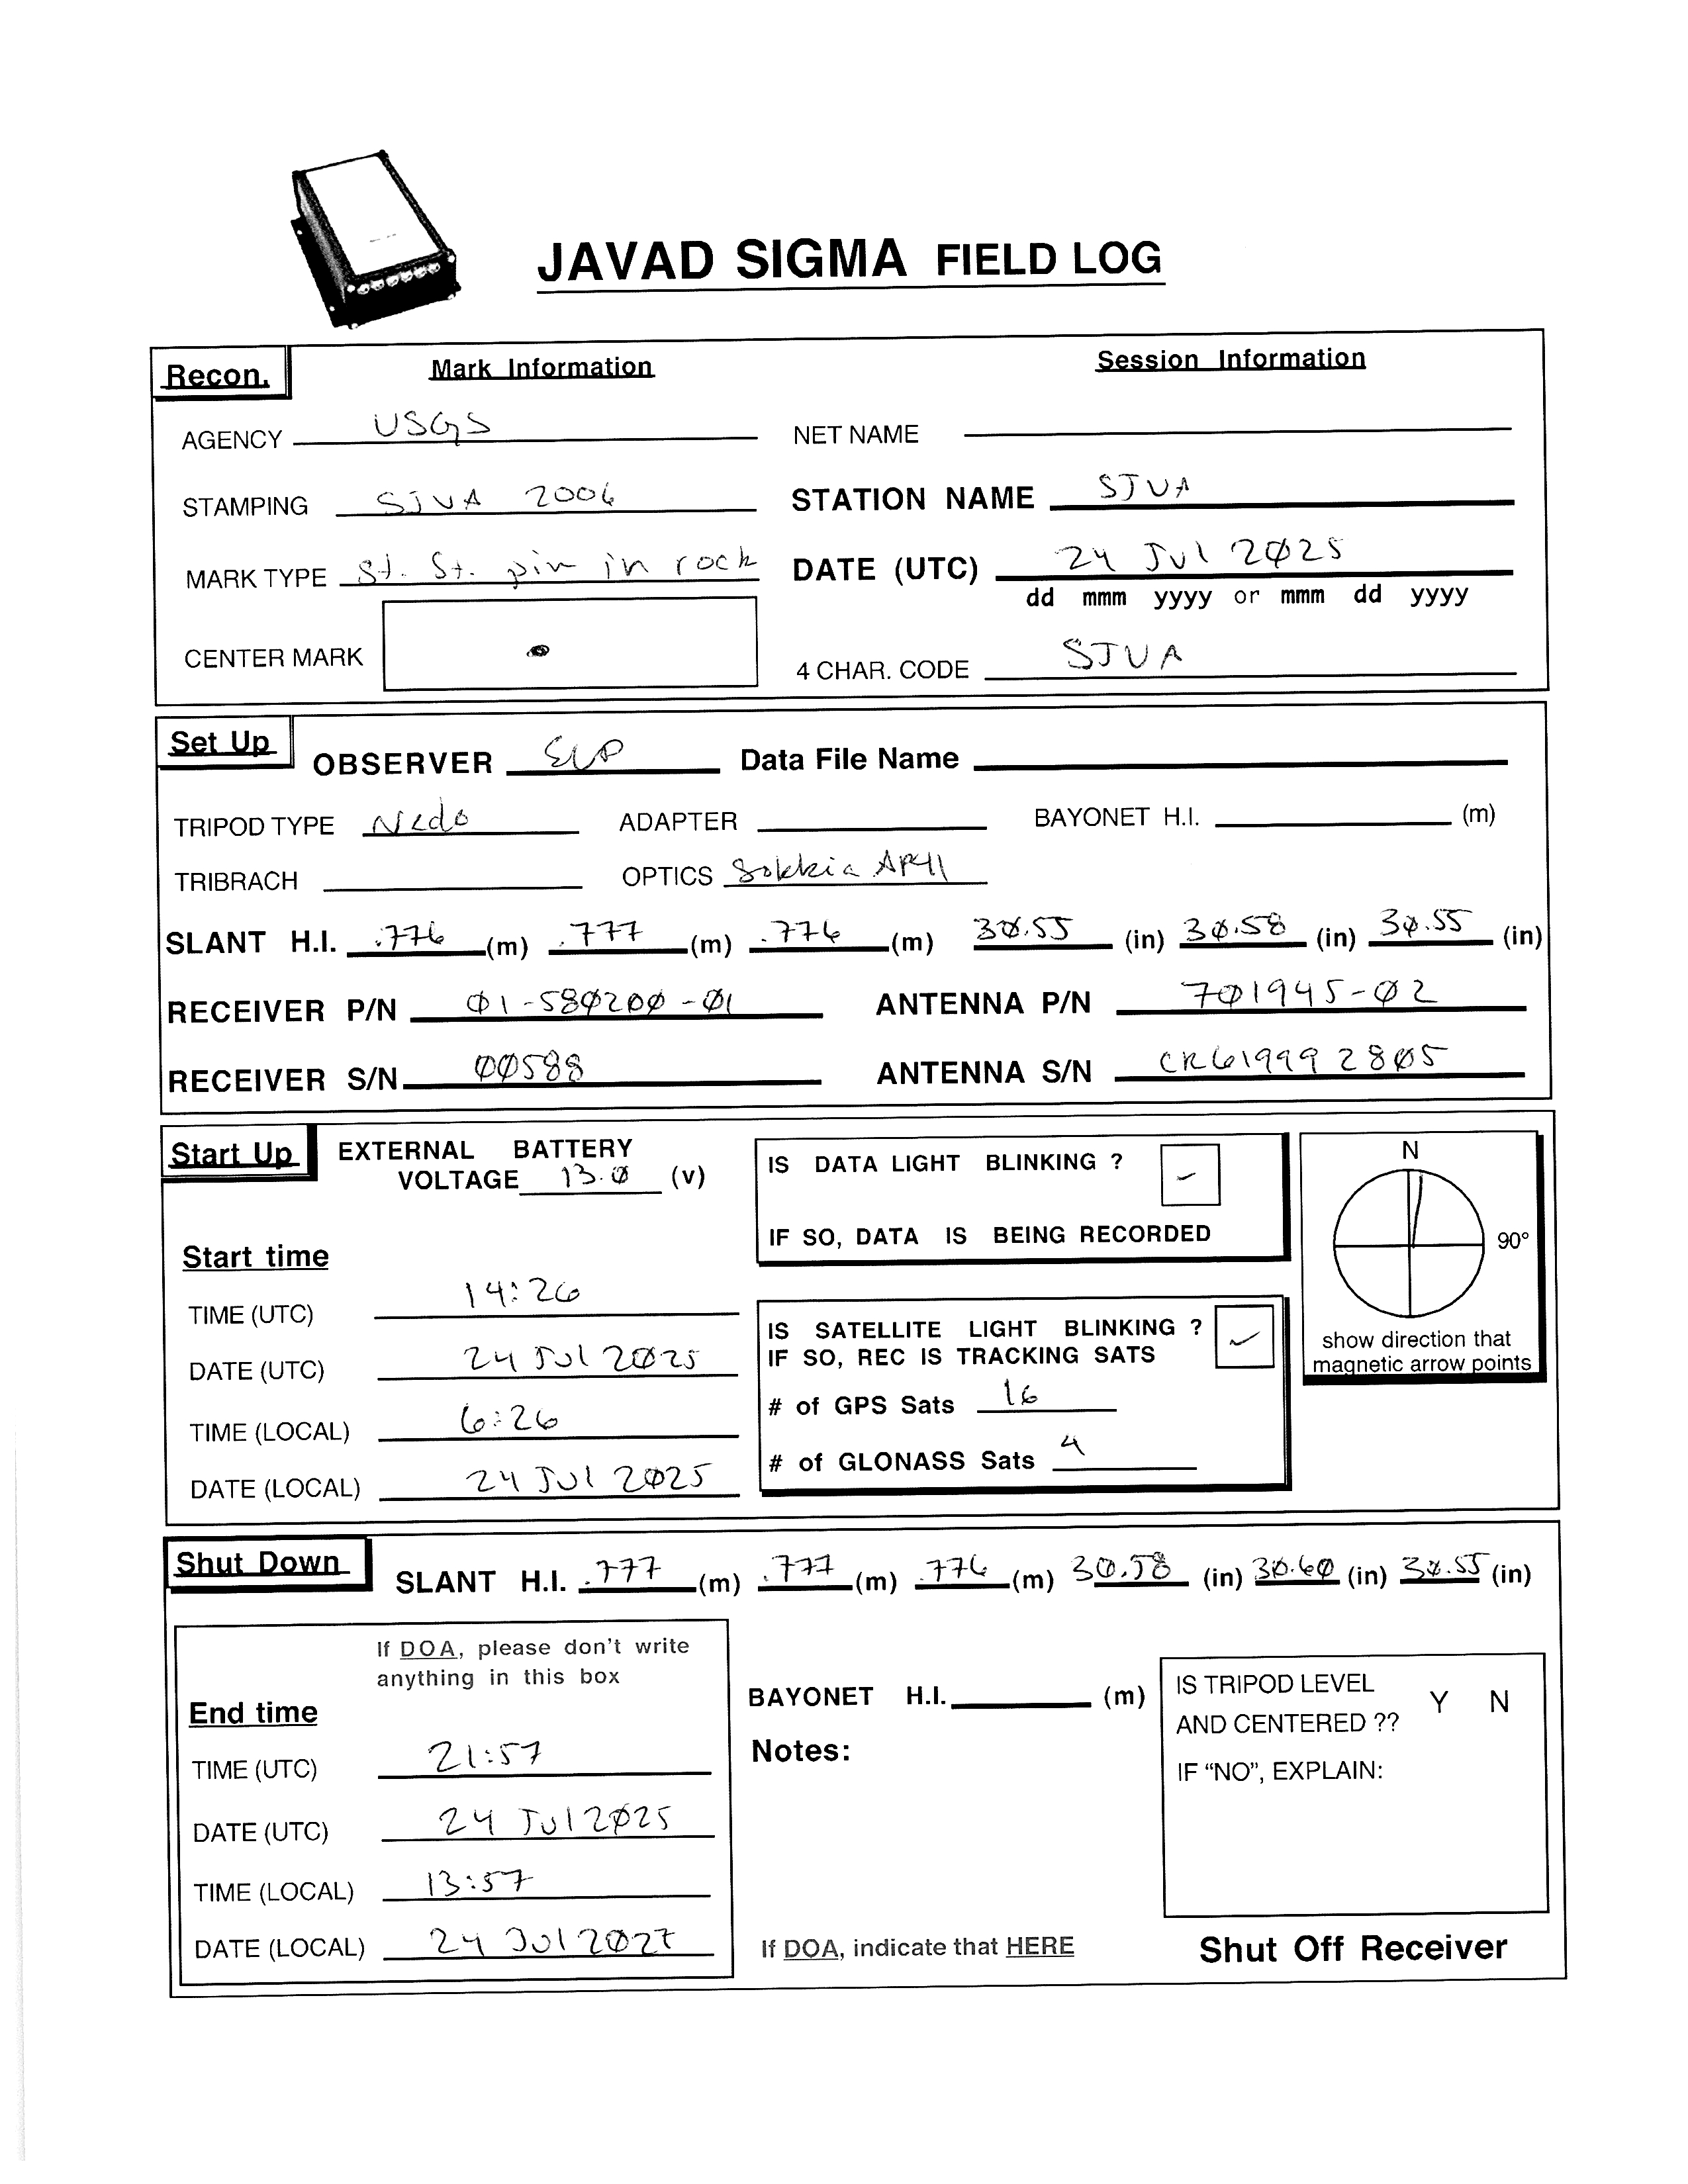 JAVAD SIGMA FIELD LOG
Recon. Mark Information Session Information
AGENCY USGS NET NAME
STAMPING SJVA 2006 STATION NAME SJVA
MARK TYPE St. St. pin in rock DATE (UTC) 24 Jul 2025
dd mmm yyyy or mmm dd yyyy
CENTER MARK 4 CHAR. CODE SJVA
Set Up OBSERVER Data File Name
TRIPOD TYPE Nedo ADAPTER BAYONET H.I. (m)
TRIBRACH OPTICS Sokkia AP41
SLANT H.I. .776 (m) .777 (m) .776 (m) 30.55 (in) 30.58 (in) 30.55 (in)
RECEIVER P/N 01-580200-01 ANTENNA P/N 701945-02
RECEIVER S/N 00588 ANTENNA S/N CR619992805
Start Up EXTERNAL BATTERY
VOLTAGE 13.0 (v)
IS DATA LIGHT BLINKING ? ✓
IF SO, DATA IS BEING RECORDED
N
90°
show direction that
magnetic arrow points
Start time
TIME (UTC) 14:26
DATE (UTC) 24 Jul 2025
TIME (LOCAL) 6:26
DATE (LOCAL) 24 Jul 2025
IS SATELLITE LIGHT BLINKING ? ✓
IF SO, REC IS TRACKING SATS
# of GPS Sats 16
# of GLONASS Sats 4
Shut Down SLANT H.I. .777 (m) .777 (m) .776 (m) 30.58 (in) 30.60 (in) 30.55 (in)
If DOA, please don't write
anything in this box
End time
TIME (UTC) 21:57
DATE (UTC) 24 Jul 2025
TIME (LOCAL) 13:57
DATE (LOCAL) 24 Jul
BAYONET H.I. (m)
Notes:
If DOA, indicate that HERE
IS TRIPOD LEVEL
AND CENTERED ?? Y N
IF “NO”, EXPLAIN:
Shut Off Receiver